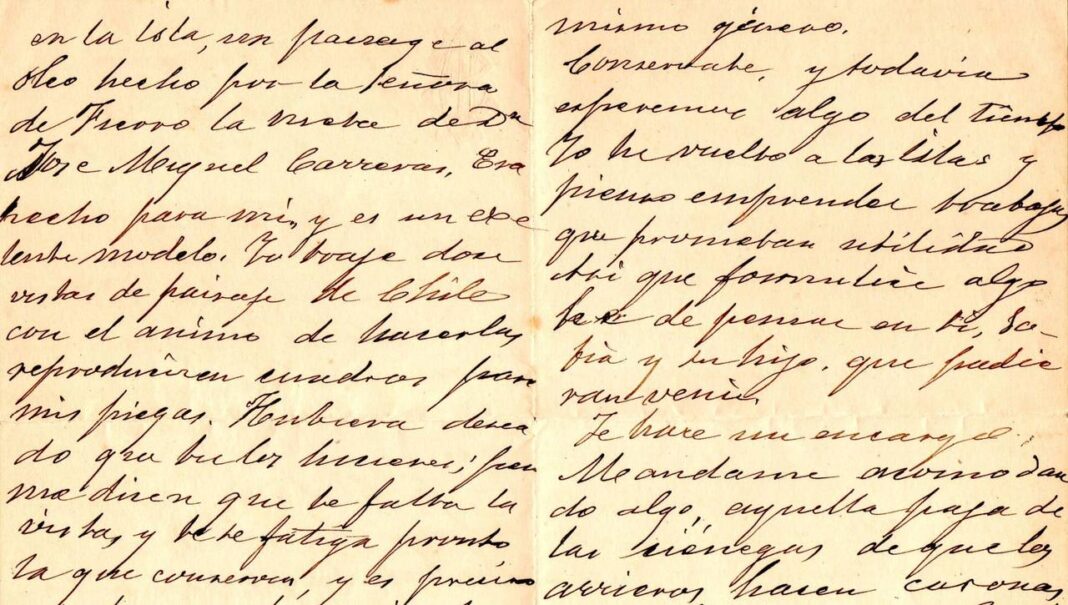 en la isla, un paisage al
Oleo hecho por la señora
de Fierro la nieta de Dn
Jose Miguel Carreras. Era
hecho para mi, y es un exe
lente modelo. Yo traje dose
vistas de paisaje de Chile
con el animo de hacerlas
reproducir en cuadros para
mis piezas. Hubiera desea
do que tu los hicieres; pero
me disen que te falta la
vista, y te se fatiga pronto
la que conservas, y es preciso
mismo género.
Conservate, y todavia
esperemos algo del tiempo
Yo he vuelto a las Islas y
pienso emprender trabajos
que prometan utilidad
Asi que formalice algo
he de pensar en ti, So
fia y tu hijo, que pudie
ran venir.
Te hare un encargo.
Meandame acomodan
do algo, aquella paja de
las ciénegas de que los
arrieros hasen coronas,